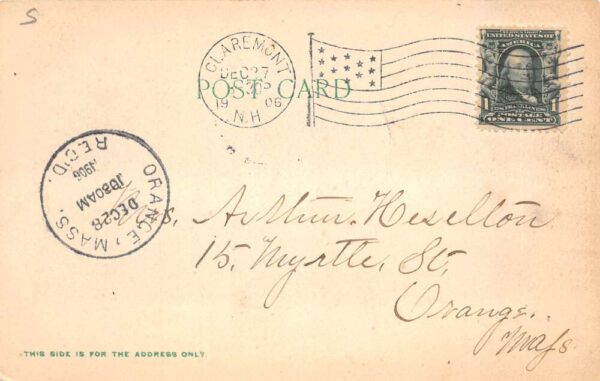 S
CLAREMONT
DEC 27
1906
N.H
POST CARD
UNITED STATES OF AMERICA
1 1
POSTAGE
ONE CENT
ORANGE, MASS.
REC'D.
DEC 28
1030AM
1906
Mrs. Arthur Heselton
15. Myrtle St.
Orange.
Mass.
THIS SIDE IS FOR THE ADDRESS ONLY